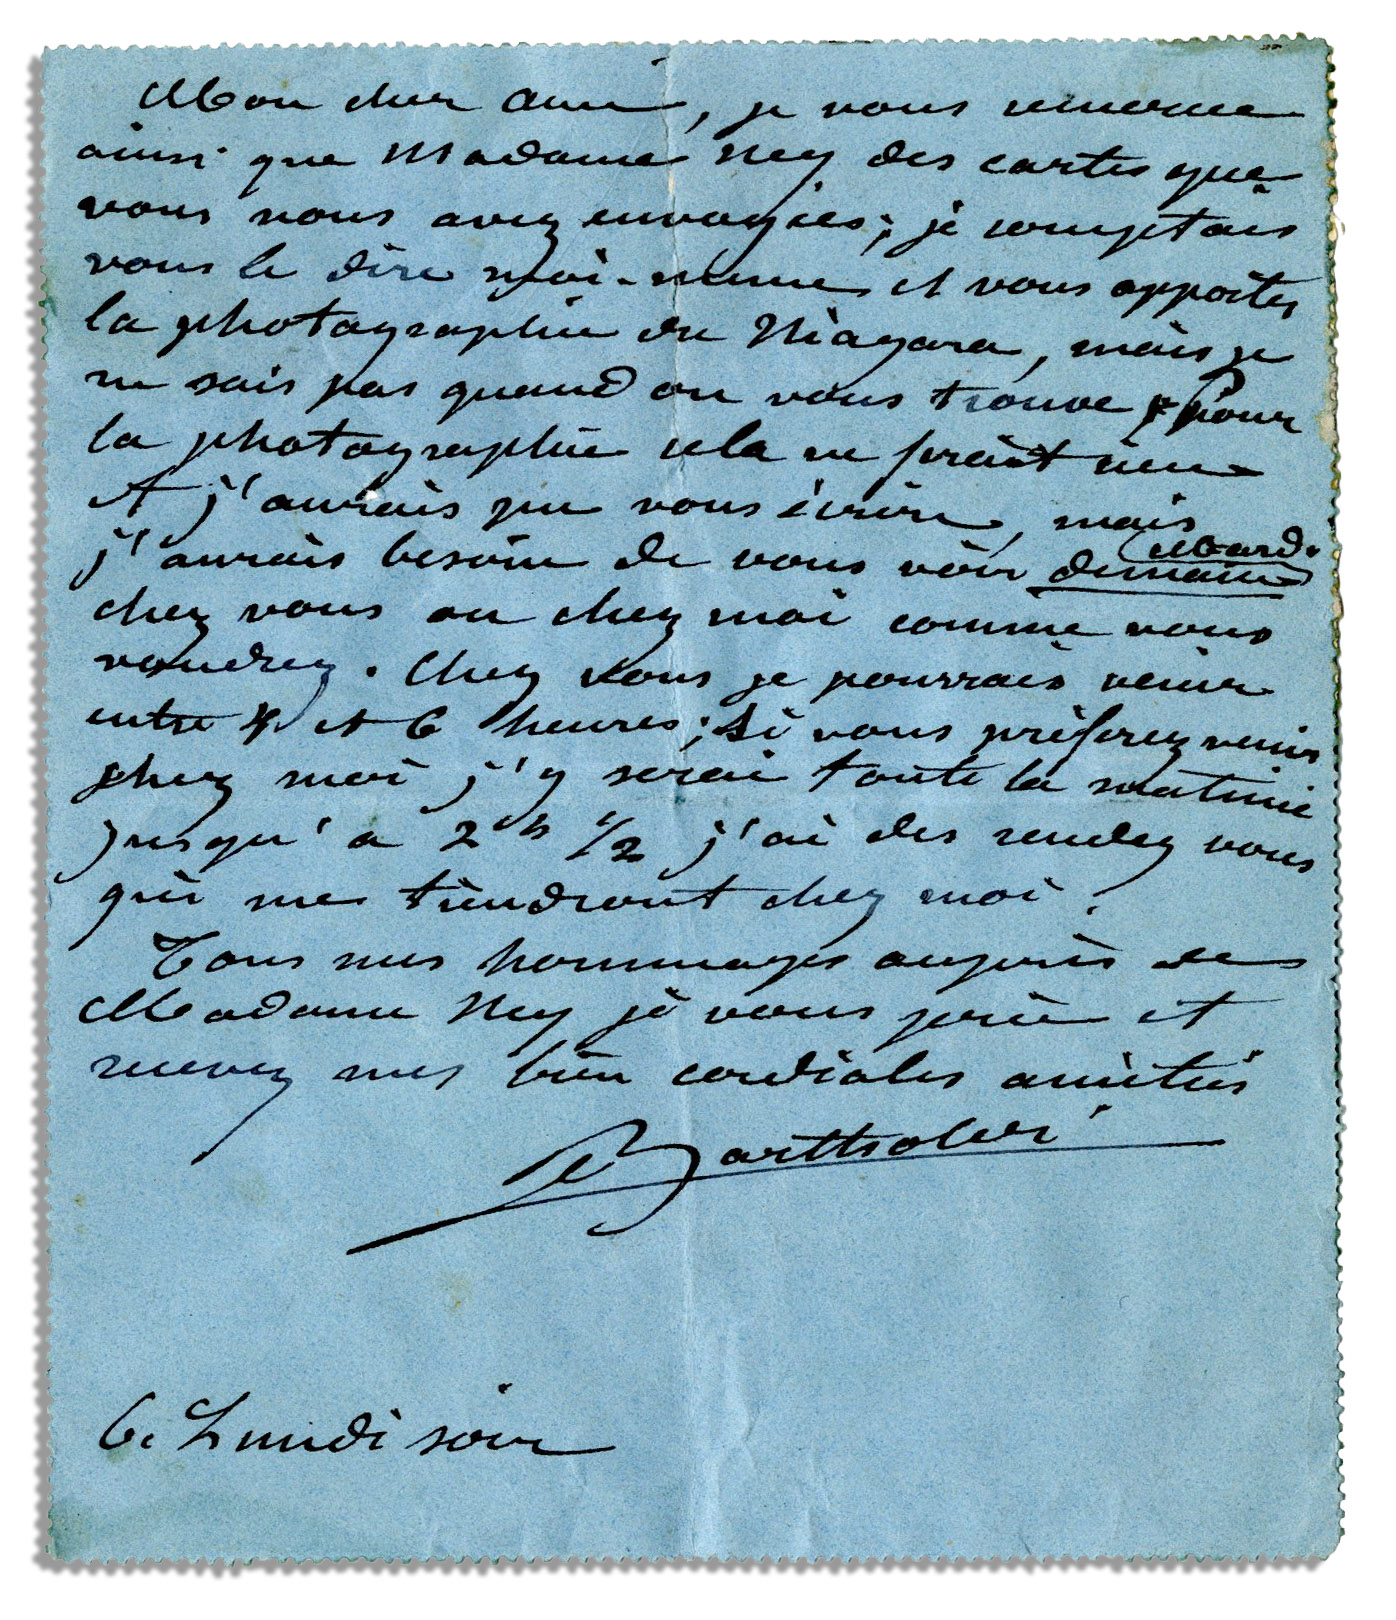 Mon cher ami, je vous remercie
ainsi que Madame Ney des cartes que
vous nous avez envoyées; je comptais
vous le dire moi-même et vous apporter
la photographie du Niagara, mais je
ne sais pas quand on vous trouve Pour
la photographie cela ne fait rien
et j'aurais pu vous écrire, mais
(Mardi
j'aurais besoin de vous voir demain)
chez vous ou chez moi comme vous
voudrez. Chez vous je pourrais venir
entre 4 et 6 heures; si vous préférez venir
chez moi j'y serai toute la matinée
jusqu'à 2h 1/2 j'ai des rendez vous
qui me tiendront chez moi.
Tous mes hommages auprès de
Madame Ney je vous prie et
recevez mes bien cordiales amitiés
Bartholdi
6. Lundi soir